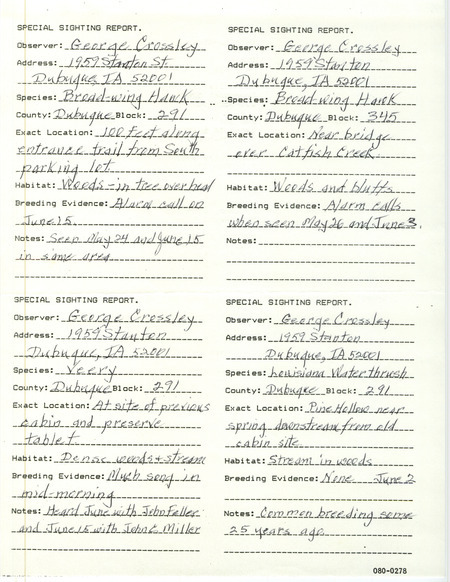 SPECIAL SIGHTING REPORT.
Observer: George Crossley
Address: 1959 Stanton St
Dubuque, IA 52001
Species: Broad-wing Hawk
County: Dubuque Block: 291
Exact Location: 100 feet along
entrance trail from South
parking lot
Habitat: Woods - in tree overhead
Breeding Evidence: Alarm call on
June 15
Notes: Seen May 24 and June 15
in same area
SPECIAL SIGHTING REPORT.
Observer: George Crossley
Address: 1959 Stanton
Dubuque, IA 52001
Species: Broad-wing Hawk
County: Dubuque Block: 345
Exact Location: Near bridge
over Catfish Creek
Habitat: Woods and bluffs
Breeding Evidence: Alarm calls
when seen May 26 and June 3.
Notes:
SPECIAL SIGHTING REPORT.
Observer: George Crossley
Address: 1959 Stanton
Dubuque, IA 52001
Species: Veery
County: Dubuque Block: 291
Exact Location: At site of previous
cabin and preserve
tablet
Habitat: Dense woods + stream
Breeding Evidence: Much song in
mid-morning
Notes: Heard June with John
and June 15 with John C Miller
SPECIAL SIGHTING REPORT.
Observer: George Crossley
Address: 1959 Stanton
Dubuque, IA 52001
Species: Louisiana Waterthrush
County: Dubuque Block: 291
Exact Location: Pine Hollow near
spring downstream from old
cabin site
Habitat: Stream in woods
Breeding Evidence: None June 2
Notes: Common breeding some
25 years ago
080-0278